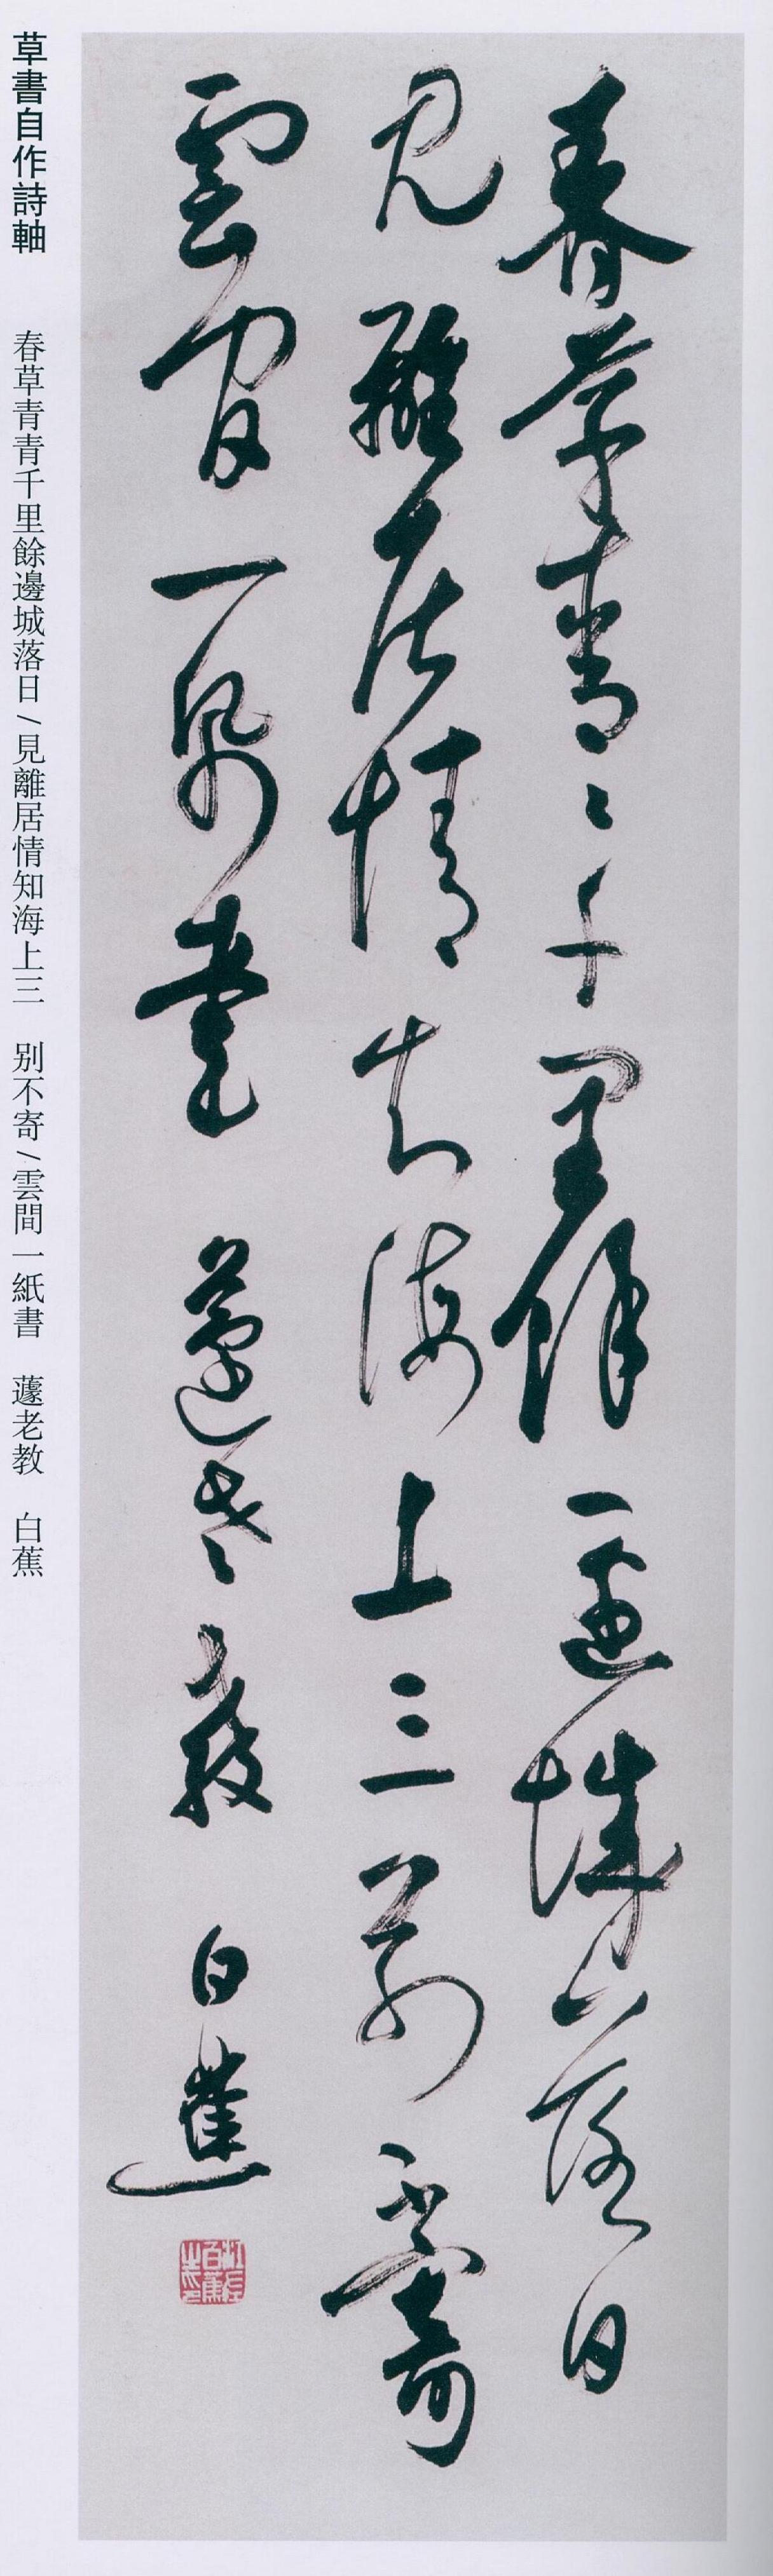 春草青〻千里餘邊城落日
見離居情知海上三别不寄
雲間一紙書 蘧老教 白蕉
草書自作詩軸 春草青青千里餘邊城落日/見離居情知海上三 别不寄/雲間一紙書 蘧老教 白蕉